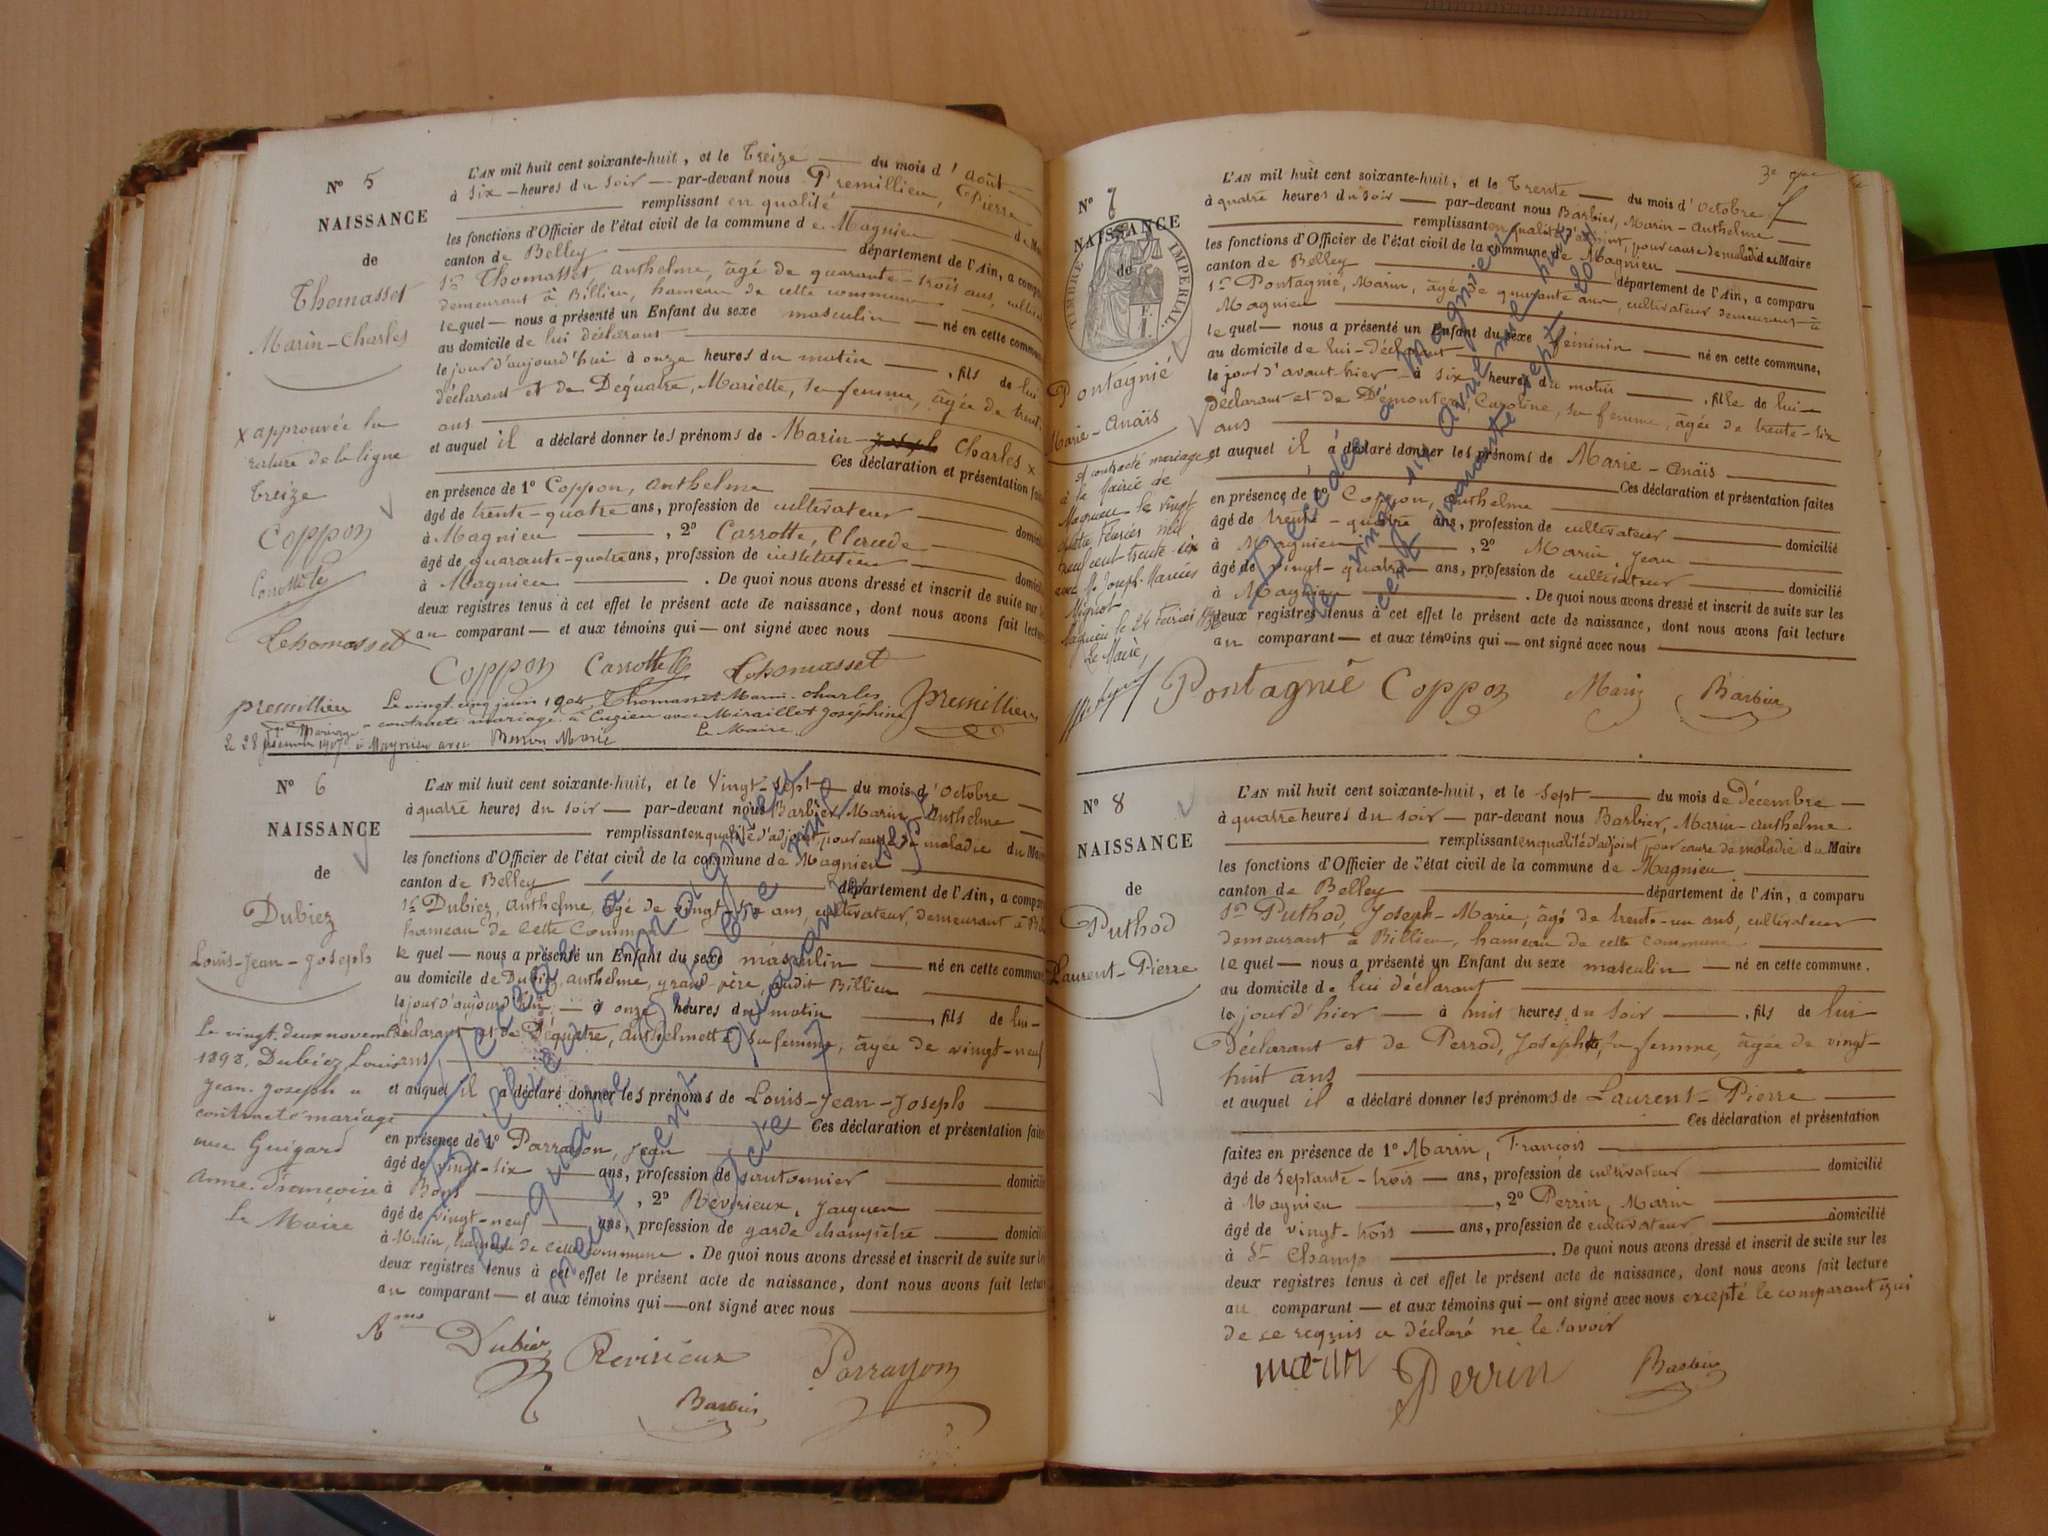 N° 5
NAISSANCE
de
Thomasset
Marin-Charles
x approuvée la
rature de la ligne
treize
Coppon
Carrotte
Thomasset
L'AN mil huit cent soixante-huit, et le Treize du mois d'Août
à six heures du soir par-devant nous Premillieu, Pierre
remplissant en qualité
les fonctions d'Officier de l'état civil de la commune de Magnieu
canton de Belley département de l'Ain, a comparu
1° Thomasset Anthelme, âgé de quarante-trois ans,
demeurant à Billieu, hameau de cette commune
lequel nous a présenté un Enfant du sexe masculin né en cette commune
au domicile de lui déclarant
le jour d'aujourd'hui à onze heures du matin, fils de lui
déclarant et de Dequatre, Mariette, sa femme, âgée de trente
ans
et auquel il a déclaré donner les prénoms de Marin-Joseph Charles x
Ces déclaration et présentation
en présence de 1° Coppon, Anthelme
âgé de trente-quatre ans, profession de cultivateur
à Magnieu, 2° Carrotte, Claude
âgé de quarante-quatre ans, profession de instituteur
à Magnieu. De quoi nous avons dressé et inscrit de suite sur
deux registres tenus à cet effet le présent acte de naissance, dont nous avons fait lecture
au comparant et aux témoins qui ont signé avec nous
Coppon Carrotte Thomasset
Premillieu
Le vingt cinq juin 1904 Thomasset Marin-Charles
a contracté mariage à Cuzieu avec Miraillet Joséphine
Le Maire
Premillieu
Mariage
Le 28 1907 à Magnieu avec Marie
N° 6
NAISSANCE
de
Dubiez
Louis-Jean-Joseph
Le vingt-deux novembre
1898, Dubiez Louis
Jean-Joseph a
contracté mariage
avec Guigard
Anne-Françoise
Le Maire
L'AN mil huit cent soixante-huit, et le Vingt-sept du mois d'Octobre
à quatre heures du soir par-devant nous Barbier, Marin-Anthelme
remplissant en qualité d'adjoint, pour cause de maladie du Maire
les fonctions d'Officier de l'état civil de la commune de Magnieu
canton de Belley département de l'Ain, a comparu
1° Dubiez, Anthelme, âgé de vingt- ans, cultivateur, demeurant à
hameau de cette Commune
lequel nous a présenté un Enfant du sexe masculin né en cette commune
au domicile de Dubiez, Anthelme, grand-père, audit Billieu
le jour d'aujourd'hui à onze heures du matin, fils de lui-
déclarant et de Dequatre, Anthelmette, sa femme, âgée de vingt-neuf
ans
et auquel il a déclaré donner les prénoms de Louis-Jean-Joseph
Ces déclaration et présentation faites
en présence de 1° Parrayon, Jean
âgé de vingt-six ans, profession de cantonnier domicilié
à Bons, 2° Revirieux, Jacques
âgé de vingt-neuf ans, profession de garde champêtre
à Musin, hameau de cette commune. De quoi nous avons dressé et inscrit de suite sur
deux registres tenus à cet effet le présent acte de naissance, dont nous avons fait lecture
au comparant et aux témoins qui ont signé avec nous
Dubiez Revirieux Parrayon
Barbier
Décédé à Magnieu
N° 7
NAISSANCE
de
TIMBRE IMPERIAL
Pontagnié
Marie-Anaïs
a contracté mariage
à la mairie de
Magnieu le vingt
quatre février mil
neuf cent trente-six
avec Mr Joseph-Marius
Mignot
Magnieu le 24 février
Le Maire,
L'AN mil huit cent soixante-huit, et le Trente du mois d'Octobre
à quatre heures du soir par-devant nous Barbier, Marin-Anthelme
remplissant en qualité d'adjoint, pour cause de maladie du Maire
les fonctions d'Officier de l'état civil de la commune de Magnieu
canton de Belley département de l'Ain, a comparu
1° Pontagnié, Marin, âgé de quarante ans, cultivateur demeurant à
Magnieu
lequel nous a présenté un Enfant du sexe féminin né en cette commune,
au domicile de lui-déclarant
le jour d'avant hier à six heures du matin, fille de lui-
déclarant et de Démontex, Caroline, sa femme, âgée de trente-six
ans
et auquel il a déclaré donner les prénoms de Marie-Anaïs
Ces déclaration et présentation faites
en présence de 1° Coppon, Anthelme
âgé de trente-quatre ans, profession de cultivateur domicilié
à Magnieu, 2° Marin, Jean
âgé de vingt-quatre ans, profession de cultivateur domicilié
à Magnieu. De quoi nous avons dressé et inscrit de suite sur les
deux registres tenus à cet effet le présent acte de naissance, dont nous avons fait lecture
au comparant et aux témoins qui ont signé avec nous
Pontagnié Coppon Marin Barbier
Décédée à Magnieu
le vingt six avril mil neuf
cent quarante sept
N° 8
NAISSANCE
de
Puthod
Laurent-Pierre
L'AN mil huit cent soixante-huit, et le Sept du mois de Décembre
à quatre heures du soir par-devant nous Barbier, Marin-Anthelme
remplissant en qualité d'adjoint pour cause de maladie du Maire
les fonctions d'Officier de l'état civil de la commune de Magnieu
canton de Belley département de l'Ain, a comparu
1° Puthod, Joseph-Marie, âgé de trente-un ans, cultivateur
demeurant à Billieu, hameau de cette commune
lequel nous a présenté un Enfant du sexe masculin né en cette commune.
au domicile de lui déclarant
le jour d'hier à huit heures du soir, fils de lui
Déclarant et de Perrod, Josephte, sa femme, âgée de vingt-
huit ans
et auquel il a déclaré donner les prénoms de Laurent-Pierre
Ces déclaration et présentation
faites en présence de 1° Marin, François
âgé de septante-trois ans, profession de cultivateur domicilié
à Magnieu, 2° Perrin, Marin
âgé de vingt-trois ans, profession de cultivateur domicilié
à St Champ. De quoi nous avons dressé et inscrit de suite sur les
deux registres tenus à cet effet le présent acte de naissance, dont nous avons fait lecture
au comparant et aux témoins qui ont signé avec nous excepté le comparant qui
de ce requis a déclaré ne le savoir
marin Perrin Barbier